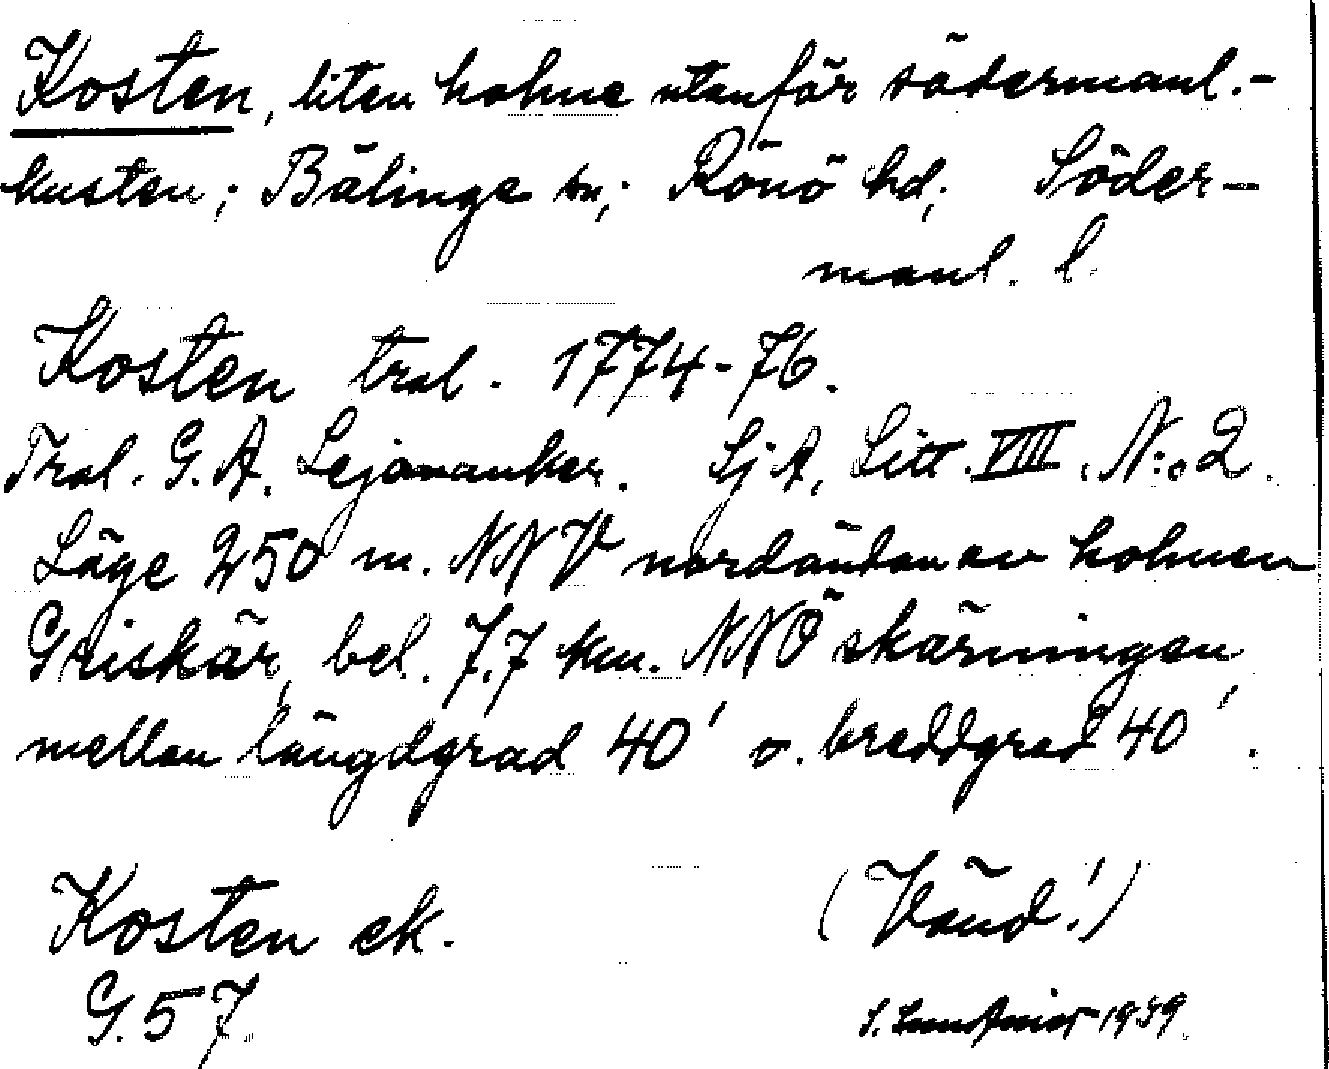 Kosten, liten holme utanför södermanl.-
kusten; Bälinge sn; Rönö hd; Söder-
manl. l.
Kosten tral. 1774-76.
Tral. G. A. Lejonanker. SjA, Litt. VIII. N:o 2.
Läge 250 m. NNV nordändan av holmen
Griskär, bel. 7,7 km. NNÖ skärningen
mellan längdgrad 40' o. breddgrad 40'.
Kosten ek. (Vänd!)
G. 57. 1939.